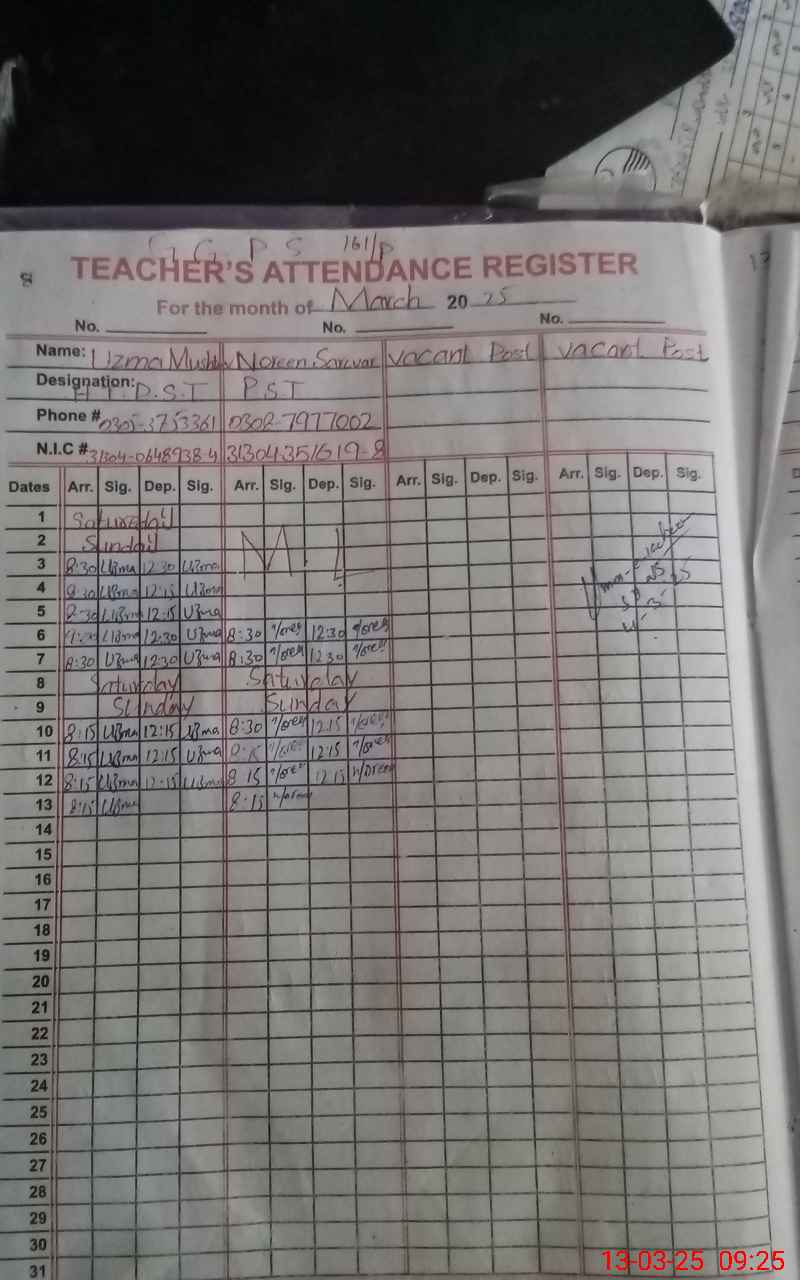 G G P S 161/P
TEACHER'S ATTENDANCE REGISTER
For the month of March 2025
No. No. No.
Name: Uzma Noreen Sarwar Vacant Post Vacant Post
Designation: P.S.T P.S.T
Phone # 0305-3753361 0302-7977002
N.I.C # 31304-0648938-4 31304351619-8
Dates Arr. Sig. Dep. Sig. Arr. Sig. Dep. Sig. Arr. Sig. Dep. Sig. Arr. Sig. Dep. Sig.
1 Saturday
2 Sunday
3 8:30 Uzma 12:30 Uzma M.L
4 8:30 Uzma 12:15 Uzma
5 8:30 Uzma 12:15 Uzma
6 Uzma 12:30 Uzma 8:30 Noreen 12:30 Noreen
7 8:30 Uzma 12:30 Uzma 8:30 Noreen 12:30 Noreen
8 Saturday Saturday
9 Sunday Sunday
10 8:15 Uzma 12:15 Uzma 8:30 Noreen 12:15 Noreen
11 8:15 Uzma 12:15 Uzma 8:15 Noreen 12:15 Noreen
12 8:15 Uzma 12:15 Uzma 8:15 Noreen 12:15 Noreen
13 8:15 Uzma 8:15 Noreen
14
15
16
17
18
19
20
21
22
23
24
25
26
27
28
29
30
31
13-03-25 09:25